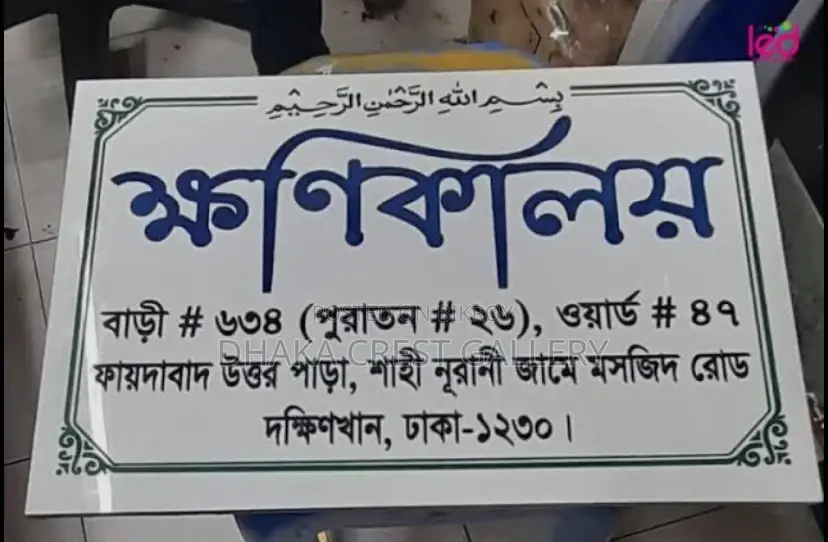 led
بِسْمِ اللهِ الرَّحْمٰنِ الرَّحِيْمِ
ক্ষণিকালয়
বাড়ী # ৬৩৪ (পুরাতন # ২৬), ওয়ার্ড # ৪৭
ফায়দাবাদ উত্তর পাড়া, শাহী নূরানী জামে মসজিদ রোড
দক্ষিণখান, ঢাকা-১২৩০।
POSTED ON JIKI.CO
DHAKA CREST GALLERY